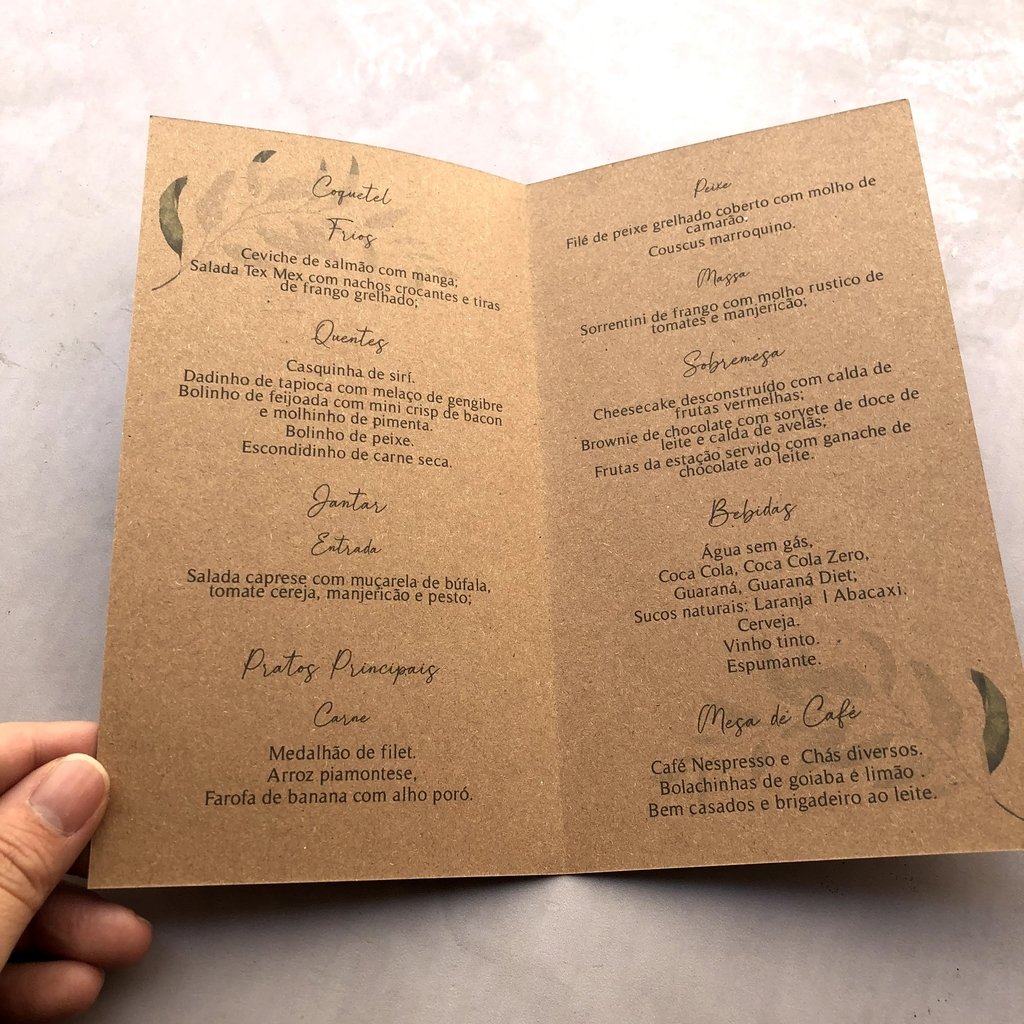 Coquetel
Frios
Ceviche de salmão com manga;
Salada Tex Mex com nachos crocantes e tiras
de frango grelhado;
Quentes
Casquinha de sirí.
Dadinho de tapioca com melaço de gengibre
Bolinho de feijoada com mini crisp de bacon
e molhinho de pimenta.
Bolinho de peixe.
Escondidinho de carne seca.
Jantar
Entrada
Salada caprese com muçarela de búfala,
tomate cereja, manjericão e pesto;
Pratos Principais
Carne
Medalhão de filet.
Arroz piamontese,
Farofa de banana com alho poró.
Peixe
Filé de peixe grelhado coberto com molho de
camarão.
Couscus marroquino.
Massa
Sorrentini de frango com molho rustico de
tomates e manjericão;
Sobremesa
Cheesecake desconstruído com calda de
frutas vermelhas;
Brownie de chocolate com sorvete de doce de
leite e calda de avelãs;
Frutas da estação servido com ganache de
chocolate ao leite.
Bebidas
Água sem gás,
Coca Cola, Coca Cola Zero,
Guaraná, Guaraná Diet;
Sucos naturais: Laranja | Abacaxi.
Cerveja.
Vinho tinto.
Espumante.
Mesa de Café
Café Nespresso e Chás diversos.
Bolachinhas de goiaba e limão .
Bem casados e brigadeiro ao leite.